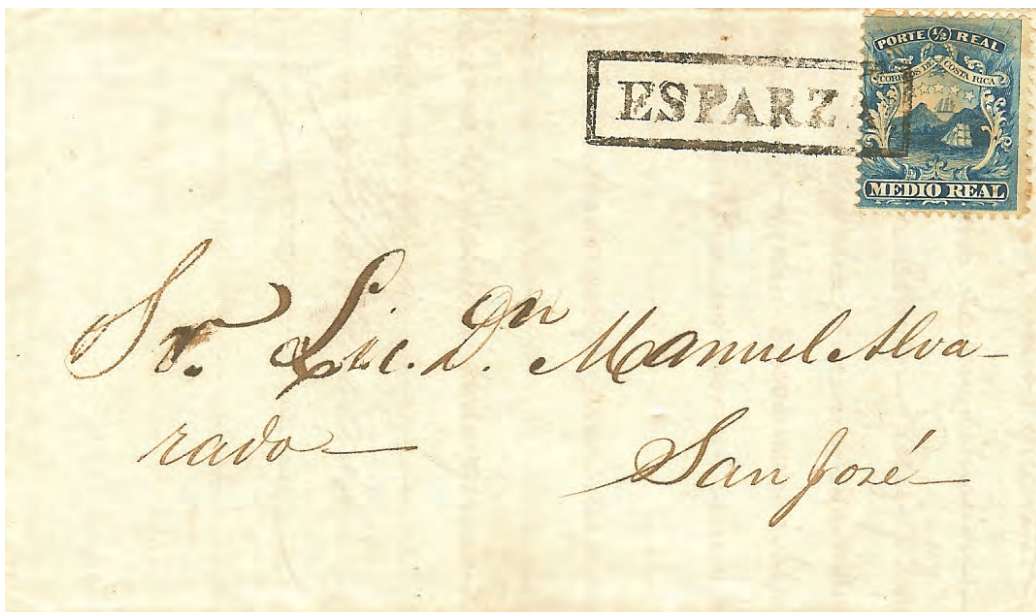 PORTE ½ REAL
CORREOS DE COSTA RICA
ESPARZ
MEDIO REAL
Sr. Lic. Dn. Manuel Alva-
rado
San José